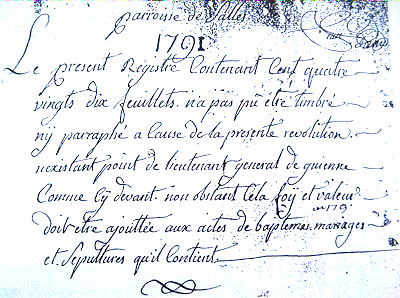 parroisse de Salles
1791
Le present Registre Contenant Cent quatre
vingts dix feuillets. n'a pas pû être timbré
nÿ parraphé a Cause de la presente revolution.
n'existant point de lieutenant general de guienne
Comme Cÿ devant. non obstant Cela foÿ et valeur
doit être ajouttée aux actes de baptemes. mariages
et Sepultures qu'il Contient.